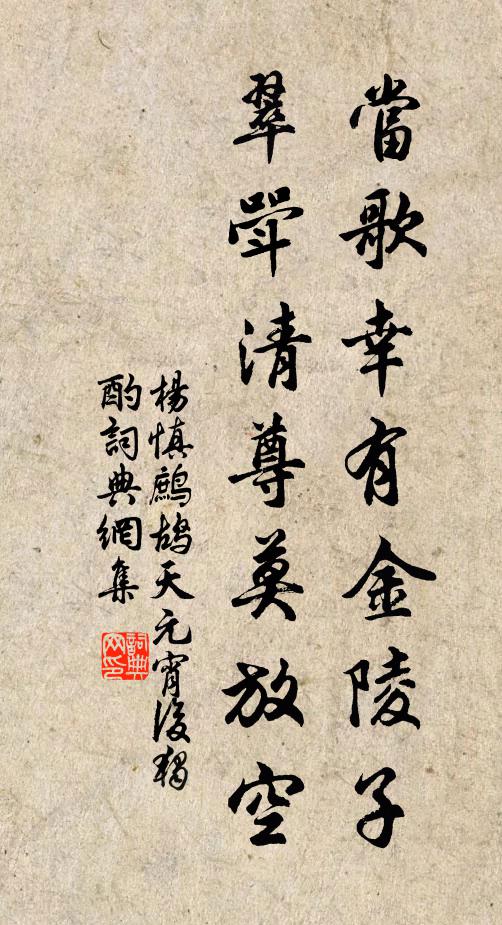 當歌幸有金陵子
翠斝清尊莫放空
楊慎鷓鴣天元宵後獨
酌詞典網集
詞典網印